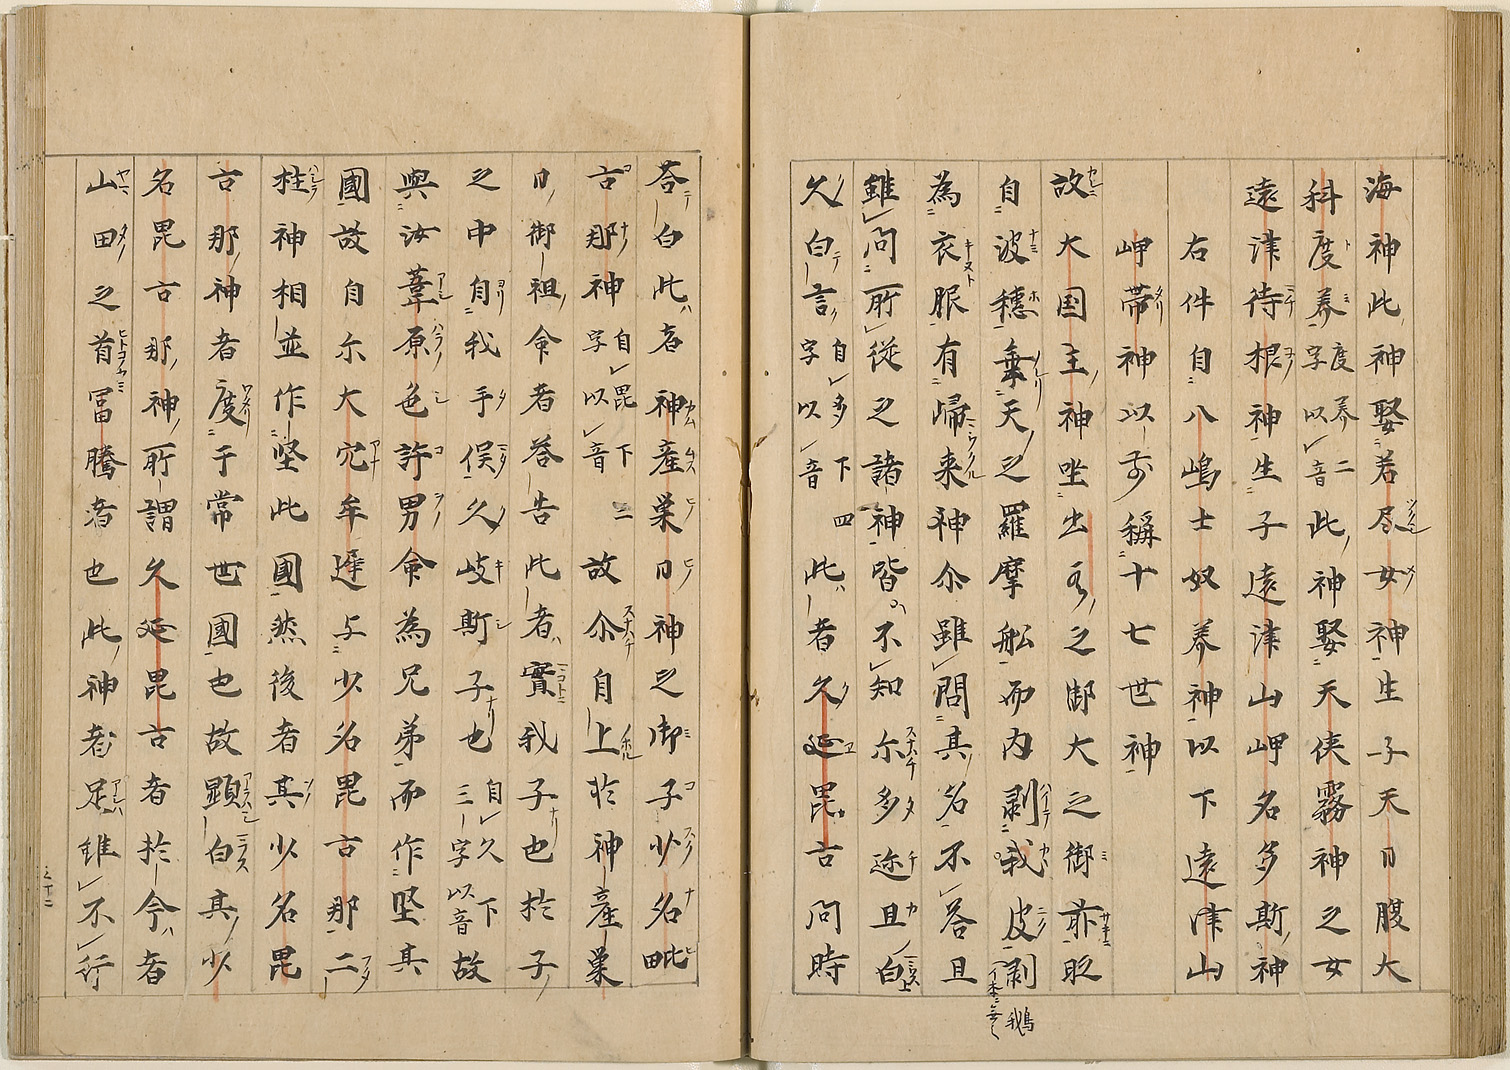 海神此神娶若尽女神生子天日腹大
科度養字度養二以音此神娶天俠霧神之女
遠津待根神生子遠津山岬名多斯神
右件自八嶋士奴養神以下遠津山
岬帯神以前稱十七世神
故大国主神坐出之御大之御前時
自波穗乗天之羅摩舩而内剥我皮剥
鵝
為衣服有歸来神尒雖問其名不答且
雖問所従之諸神皆不知尒多迩且白
久白言自多下四字以音此者久延毘古問時
荅白此者神産巣日神之御子少名毗
古那神自毘下二字以音故尒自上於神産巣
日御祖命者荅告此者實我子也於子
之中自我手俣久岐斯子也自久下三字以音故
與汝葦原色許男命為兄弟而作堅其
國故自尒大穴牟遅与少名毘古那二
柱神相並作堅此國然後者其少名毘
古那神者度于常世國也故顕白其少
名毘古那神所謂久延毘古者於今者
山田之首冨騰者也此神者足雖不行